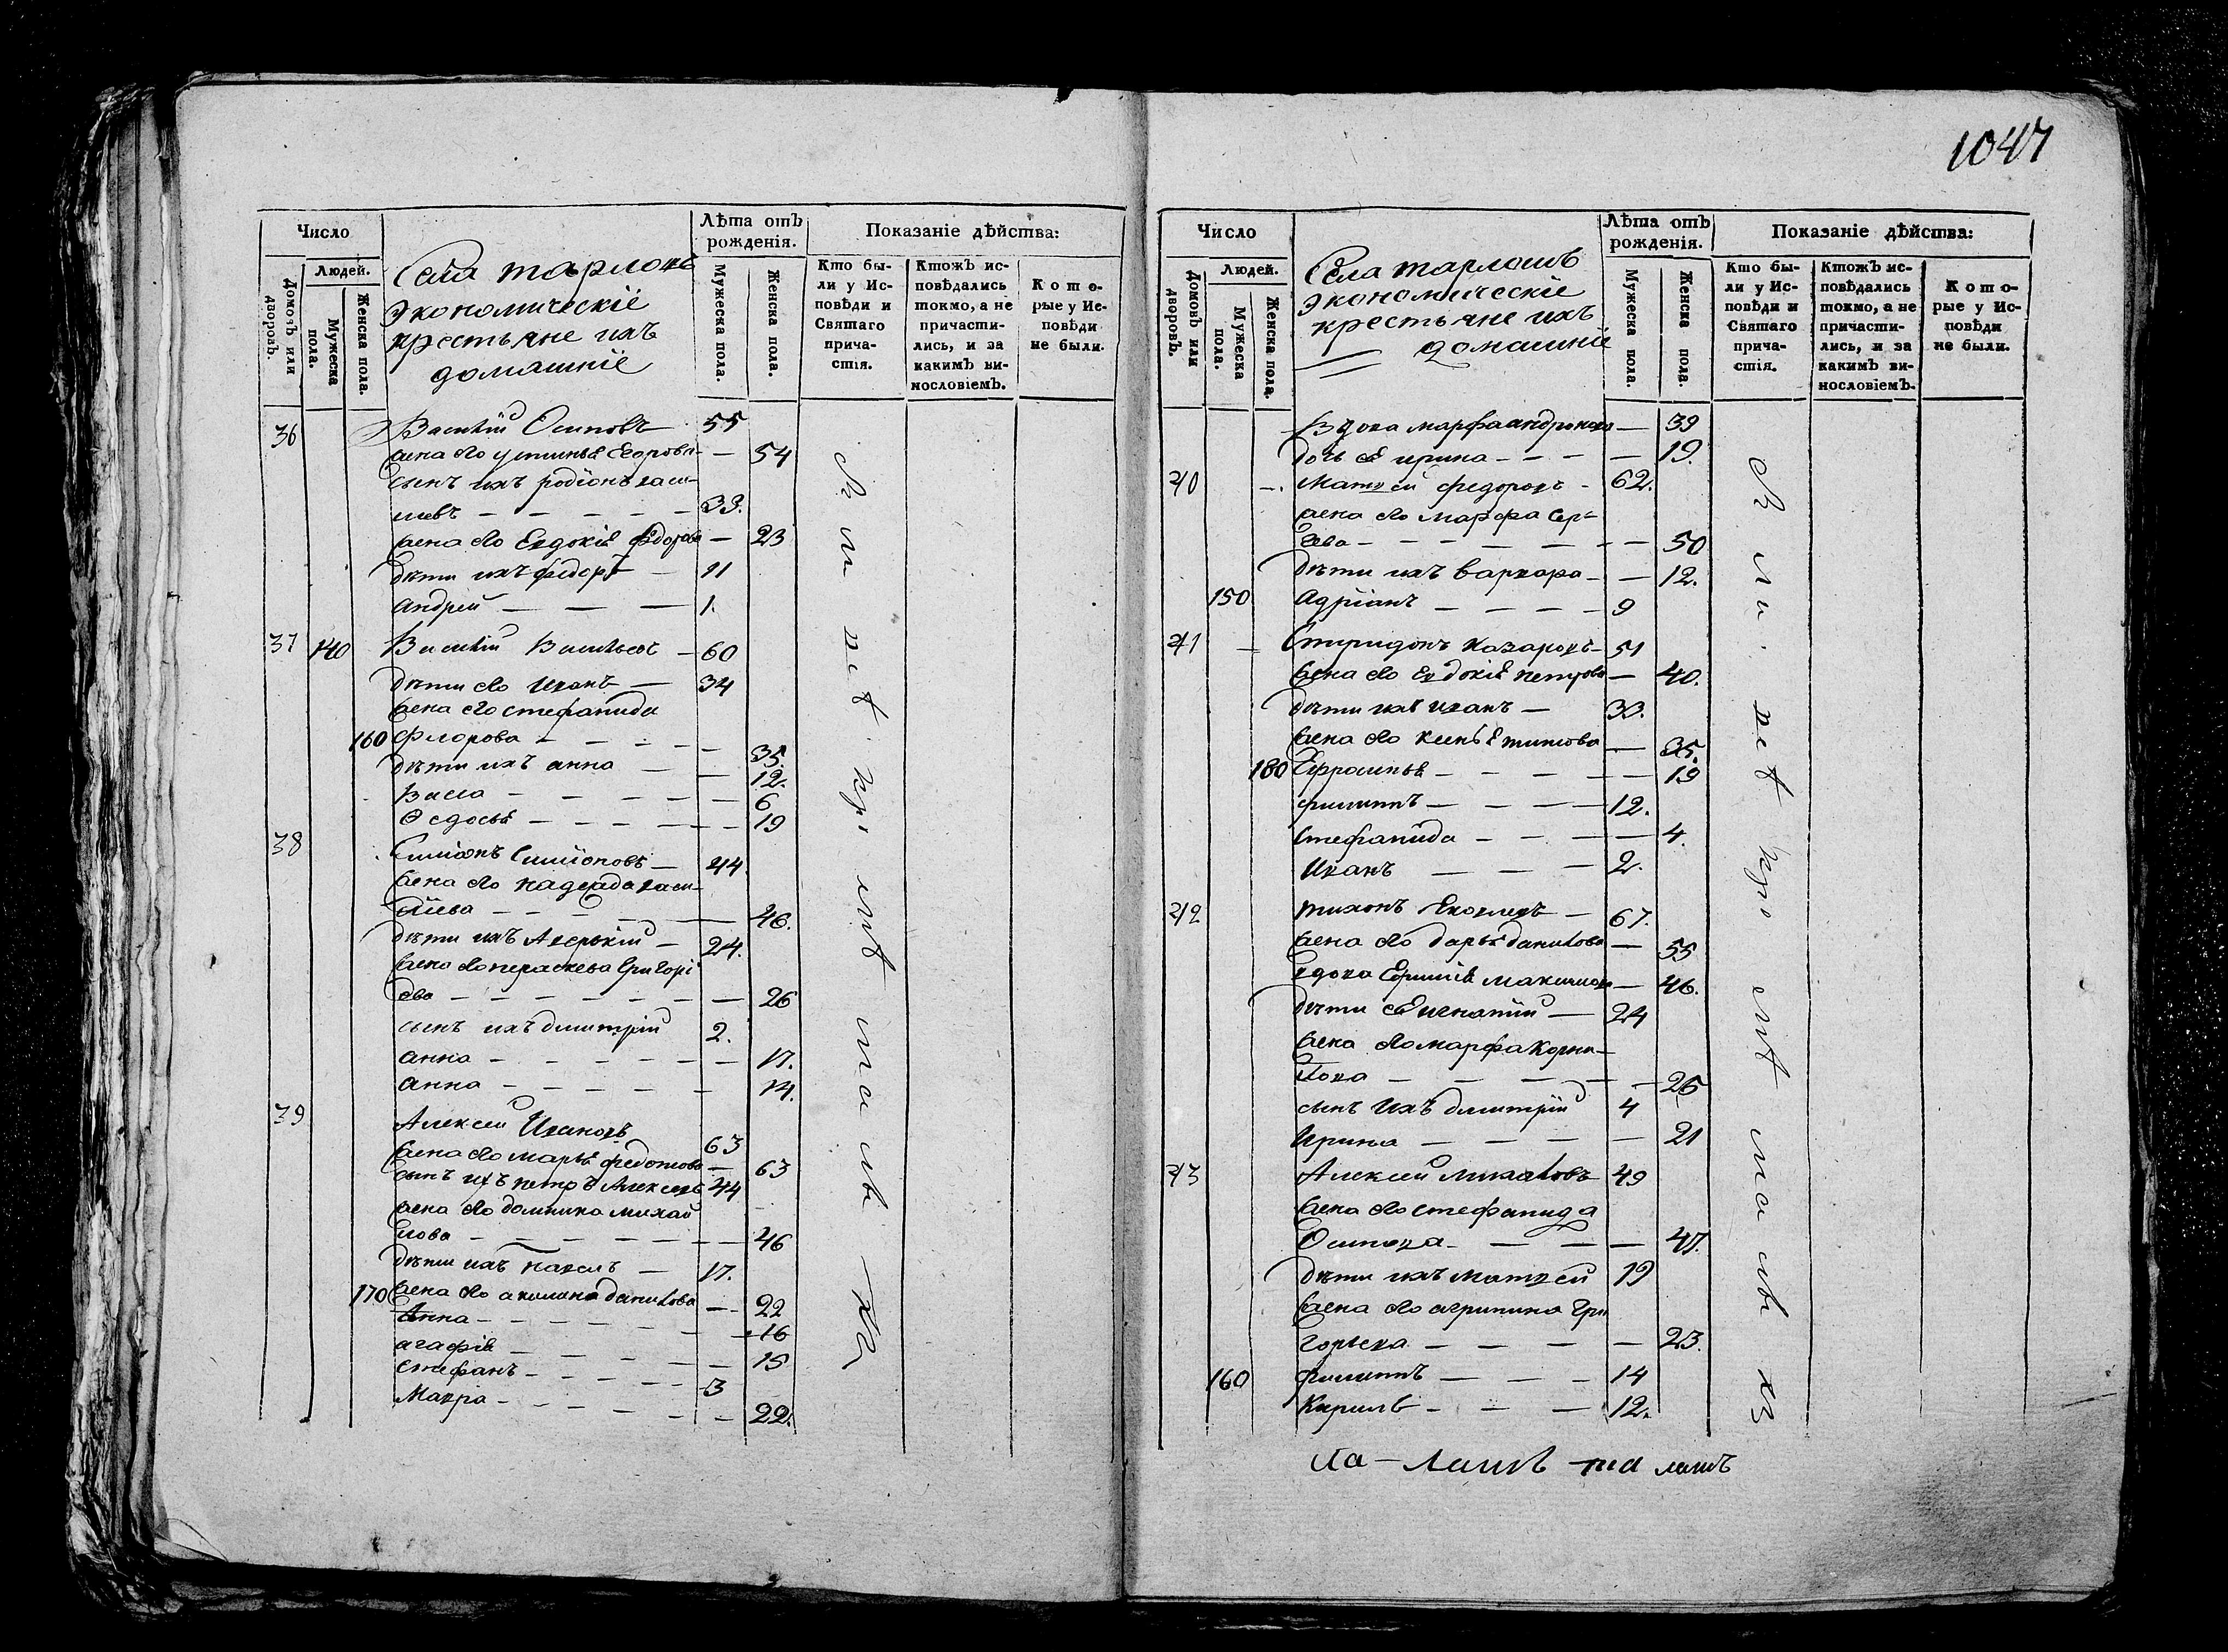 1047
Число
Лѣта отъ рожденія.
Показаніе дѣйства:
Домовъ или дворовъ.
Людей.
Мужеска пола.
Женска пола.
Села
экономическіе
крестьяне ихъ
домашніе
Мужеска пола.
Женска пола.
Кто бы-
ли у Ис-
повѣди и
Святаго
прича-
стія.
Ктожъ ис-
повѣдались
токмо, а не
причасти-
лись, и за
какимъ ви-
нословіемъ.
Кото-
рые у Ис-
повѣди
не были.
36 Василій Осиповъ 55
жена его устинья Егорова — 54
сынъ ихъ родіонъ васи-
льевъ — — — — 33.
жена его Евдокія Федорова — 23
дѣти ихъ федоръ — 11
андрей — — — 1.
37 140 Василій Васильевъ — 60
дѣти его Иванъ — 34
жена его стефанида
160 флорова — — — — 35.
дѣти ихъ анна — — 12.
Васса — — — — 6
Ѳедосья — — — — 19
38 Симіонъ Симіоновъ — 44
жена его надежда васи-
лiева — — — — 46.
дѣти ихъ Аверькій — 24.
жена его параскева Григорі
ева — — — — — 26
сынъ ихъ дмитрій 2.
анна — — — — — 17.
анна — — — — — 14.
39 Алексей Ивановъ 63
жена его марья федотова — 63
сынъ ихъ петръ Алексеевъ 44
жена его домника михай
лова — — — — — 46
дѣти ихъ павелъ — 17.
170 жена его акилина данилова — 22
Анна — — — — — 16
агафія — — — — 15
стефанъ — — — — 3
Мавра — — — — — 22.
Число
Лѣта отъ рожденія.
Показаніе дѣйства:
Домовъ или дворовъ.
Людей.
Мужеска пола.
Женска пола.
Села
экономическіе
крестьяне ихъ
домашніе
Мужеска пола.
Женска пола.
Кто бы-
ли у Ис-
повѣди и
Святаго
прича-
стія.
Ктожъ ис-
повѣдались
токмо, а не
причасти-
лись, и за
какимъ ви-
нословіемъ.
Кото-
рые у Ис-
повѣди
не были.
Вдова марфа андронова — 39
дочь ея ирина — — — — 19.
40 Матвей федоровъ — 62.
жена его марфа Сер-
геева — — — — — 50
дѣти ихъ варвара — — 12.
150 Адріанъ — — — — 9
41 — Спиридонъ назаровъ — 51
жена его Евдокія петрова — 40.
дѣти ихъ иванъ — 33.
жена его ксенья титова — 35.
180 Ефросинья — — — — 19
филиппъ — — — — 12.
стефанида — — — — 4.
Иванъ — — — 2.
42 тихонъ Яковлевъ — 67.
жена его дарья данилова — 55
вдова Ефимія максимова — 46.
дѣти ея игнатій — 24
жена его марфа Корни-
лова — — — — — 25
сынъ ихъ дмитрій 4
Ирина — — — — 21
43 Алексей михаиловъ 49
жена его стефанида
Осипова — — — — 47.
дѣти ихъ матвей 19
жена его агрипина Гри
горьева — — — — 23.
160 филиппъ — — — 14
Кирилъ — — — 12.